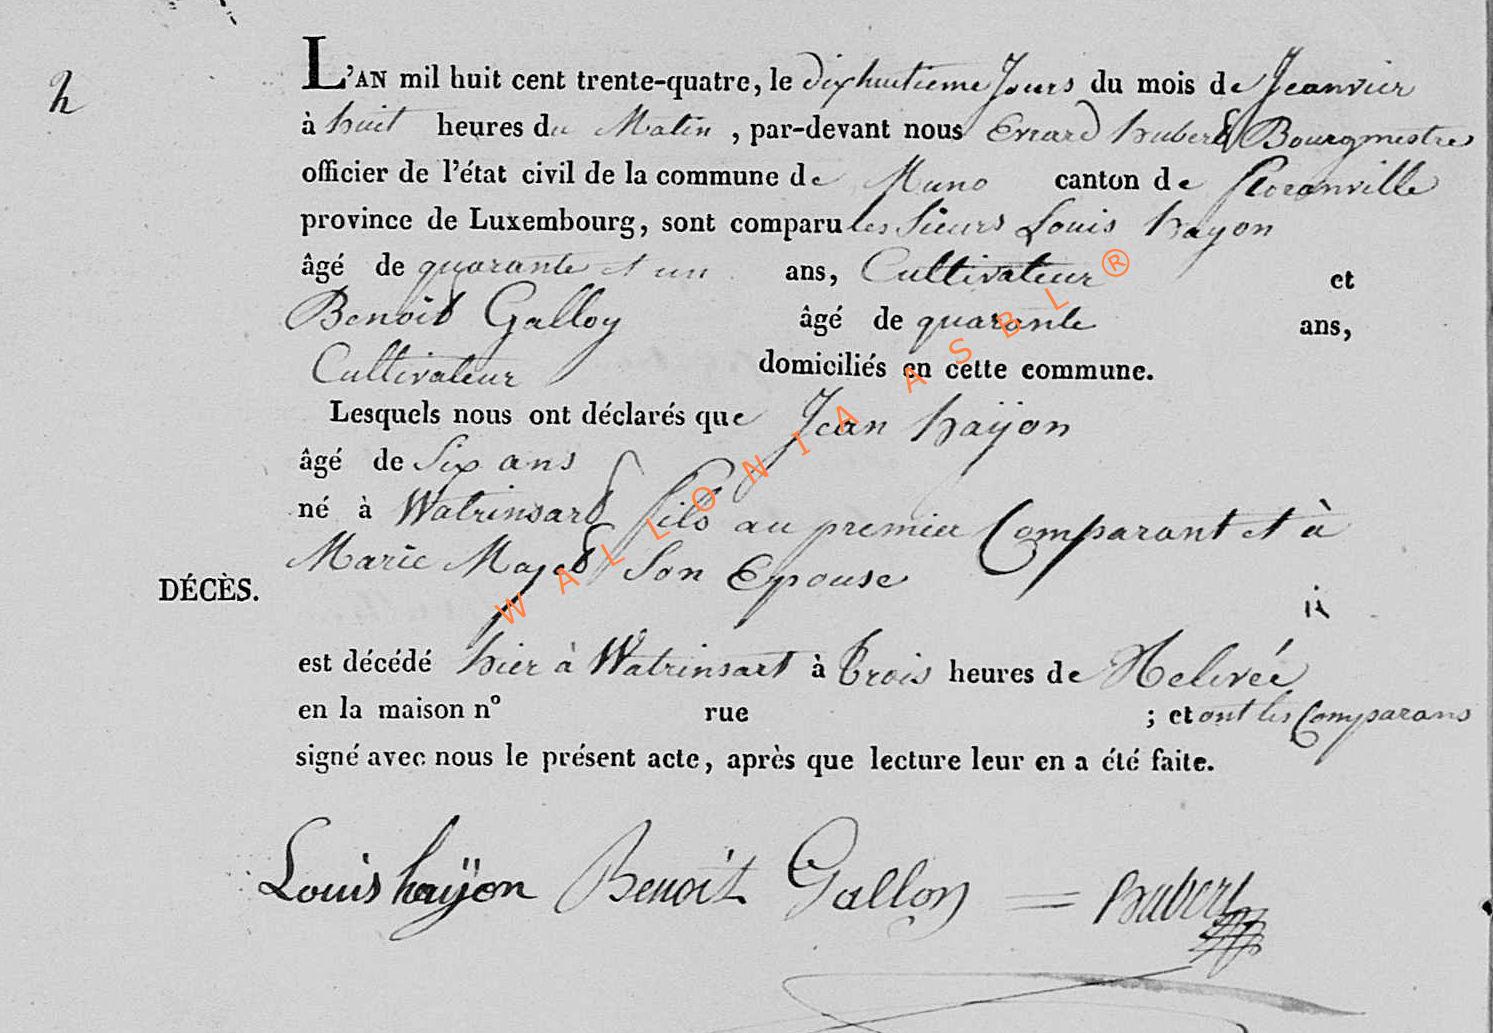 2
L'AN mil huit cent trente-quatre, le dixhuitieme Jours du mois de Jeanvier
à huit heures du Matin, par-devant nous Errard hubert Bourgmestre
officier de l'état civil de la commune de Muno canton de floranville
province de Luxembourg, sont comparu les Sieurs Louis hayon
âgé de quarante et un ans, Cultivateur et
Benoit Galloy âgé de quarante ans,
Cultivateur domiciliés en cette commune.
Lesquels nous ont déclarés que Jean haÿon
âgé de Six ans
né à Watrinsart fils au premier Comparant et à
Marie Son Epouse
DÉCÈS.
est décédé hier à Watrinsart à trois heures de Relevée
en la maison nº rue ; et ont les Comparans
signé avec nous le présent acte, après que lecture leur en a été faite.
Louis haÿon Benoit Galloy = hubert
WALLONIA ASBL ®